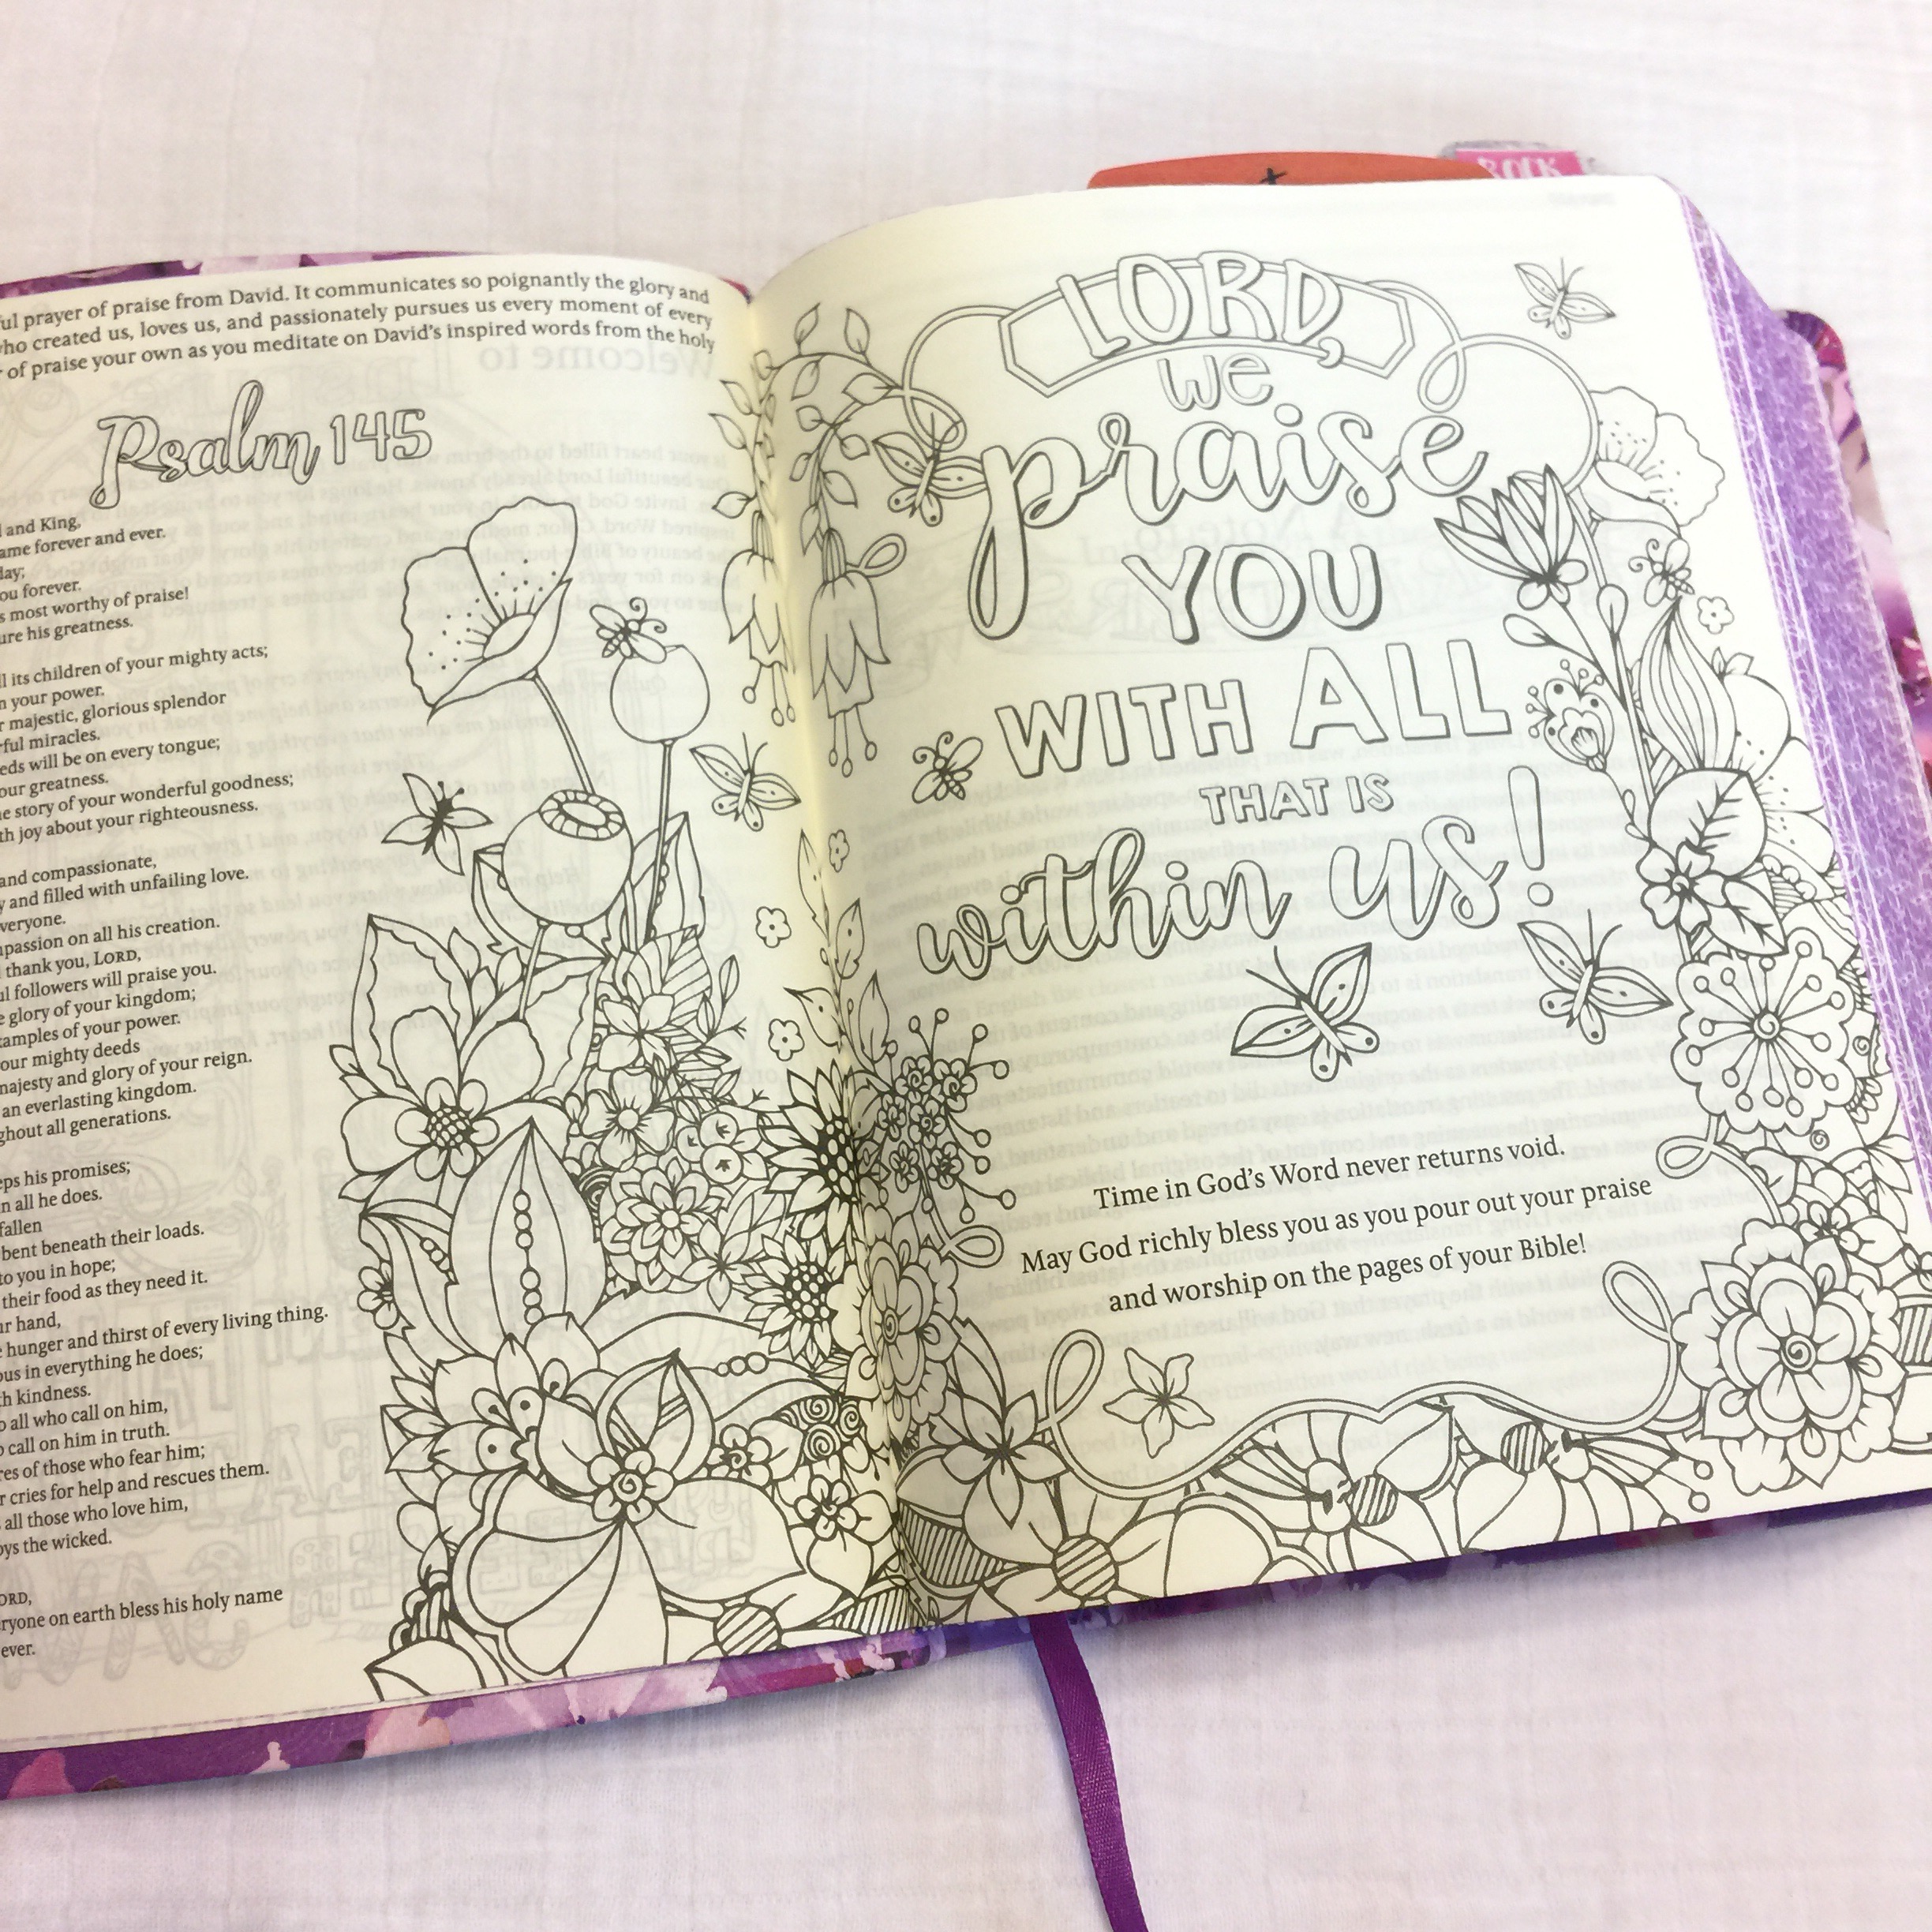 ful prayer of praise from David. It communicates so poignantly the glory and
who created us, loves us, and passionately pursues us every moment of every
of praise your own as you meditate on David's inspired words from the holy
Psalm 145
and King,
ame forever and ever.
day;
ou forever.
s most worthy of praise!
ure his greatness.
ll its children of your mighty acts;
n your power.
r majestic, glorious splendor
rful miracles.
eds will be on every tongue;
our greatness.
e story of your wonderful goodness;
th joy about your righteousness.
and compassionate,
y and filled with unfailing love.
veryone.
passion on all his creation.
thank you, LORD,
ul followers will praise you.
e glory of your kingdom;
amples of your power.
our mighty deeds
majesty and glory of your reign.
an everlasting kingdom.
ghout all generations.
eps his promises;
n all he does.
fallen
bent beneath their loads.
to you in hope;
their food as they need it.
ur hand,
hunger and thirst of every living thing.
ous in everything he does;
th kindness.
o all who call on him,
o call on him in truth.
res of those who fear him;
r cries for help and rescues them.
all those who love him,
oys the wicked.
ORD,
ryone on earth bless his holy name
ever.
LORD,
we
praise
YOU
WITH ALL
THAT IS
within us!
Time in God's Word never returns void.
May God richly bless you as you pour out your praise
and worship on the pages of your Bible!